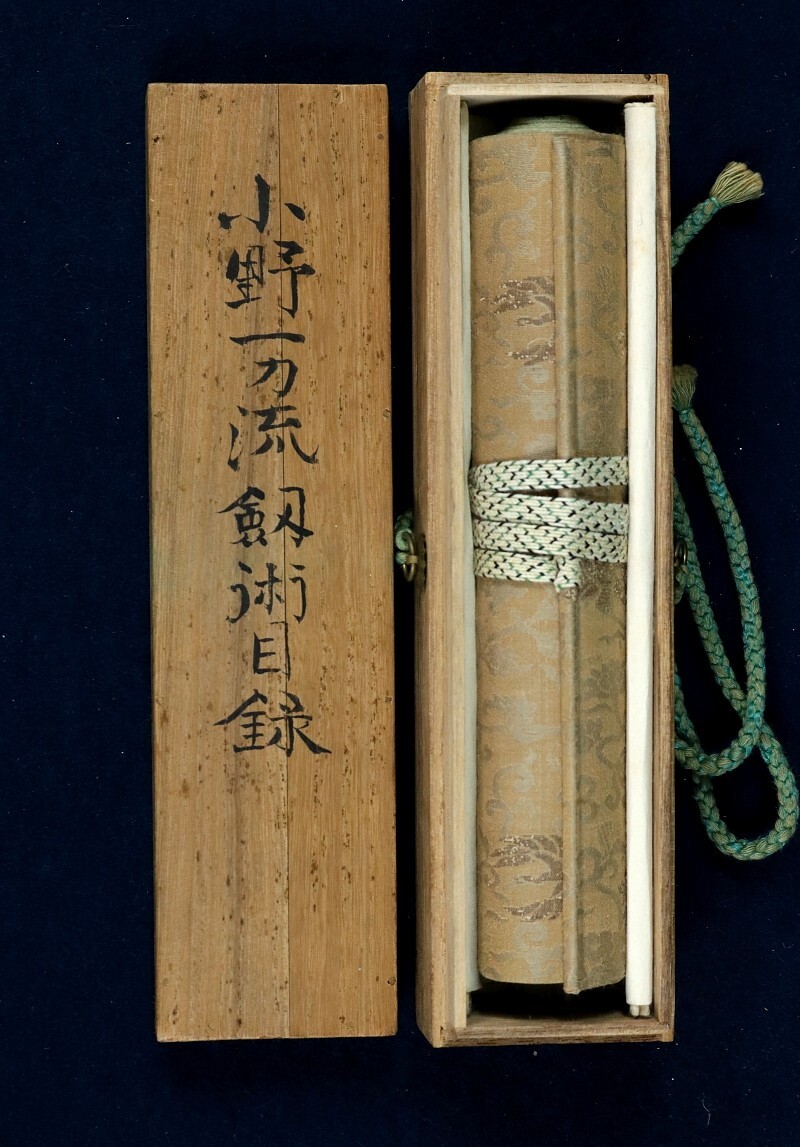 小野一刀流劔術目録